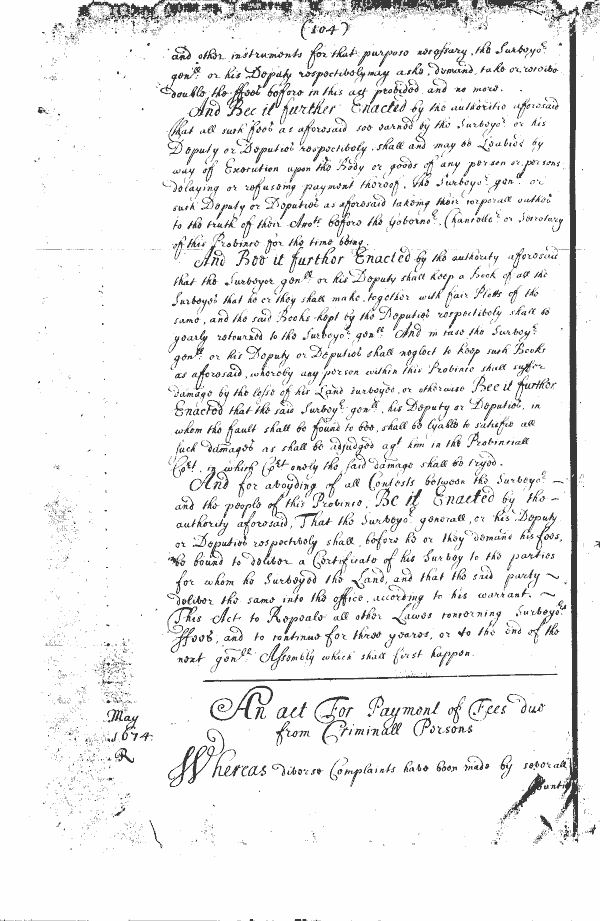 (104)
and other instruments for that purpose necessary, the Surveyor
genll or his Deputy respectively may aske, demand, take or receive
double the ffees before in this act provided and no more.
And Bee it further Enacted by the authoritie aforesaid
that all such fees as aforesaid soe earned by the Surveyor or his
Deputy or Deputies respectively, shall and may be Leavied by
way of Execution upon the Body or goods of any person or persons
delaying or refuseing payment thereof, the Surveyor genll or
such Deputy or Deputies as aforesaid takeing their corporall oathes
to the truth of their Accts before the Governor, Chancellr or Secretary
of this Province for the time being.
And Bee it further Enacted by the authority aforesaid
that the Surveyor genll or his Deputy shall keep a Book of all the
Surveyes that he or they shall make, together with fair Plotts of the
same, and the said Books kept by the Deputies respectively shall be
yearly retourned to the Surveyor genll. And in case the Surveyr
genll or his Deputy or Deputies shall neglect to keep such Books
as aforesaid, whereby any person within this Province shall suffer
damage by the losse of his Land surveyed, or otherwise Bee it further
Enacted that the said Surveyr genll, his Deputy or Deputies, in
whom the fault shall be found to bee, shall be lyable to satisfie all
such damages as shall be adjudged agt him in the Provinciall
Cort, in which Cort onely the said damage shall be tryed.
And for avoyding of all Contests between the Surveyor
and the people of this Province, Be it Enacted by the
authority aforesaid, That the Surveyor generall, or his Deputy
or Deputies respectively shall, before he or they demand his fees,
be bound to deliver a Certificate of his Survey to the parties
for whom he Surveyed the Land, and that the said party
deliver the same into the office, according to his warrant.
This Act to Repeale all other Lawes concerning Surveyors
ffees, and to continue for three yeares, or to the end of the
next genll Assembly which shall first happen.
An act For Payment of Fees due
from Criminall Persons
May
1674.
R
Whereas diverse Complaints have been made by severall